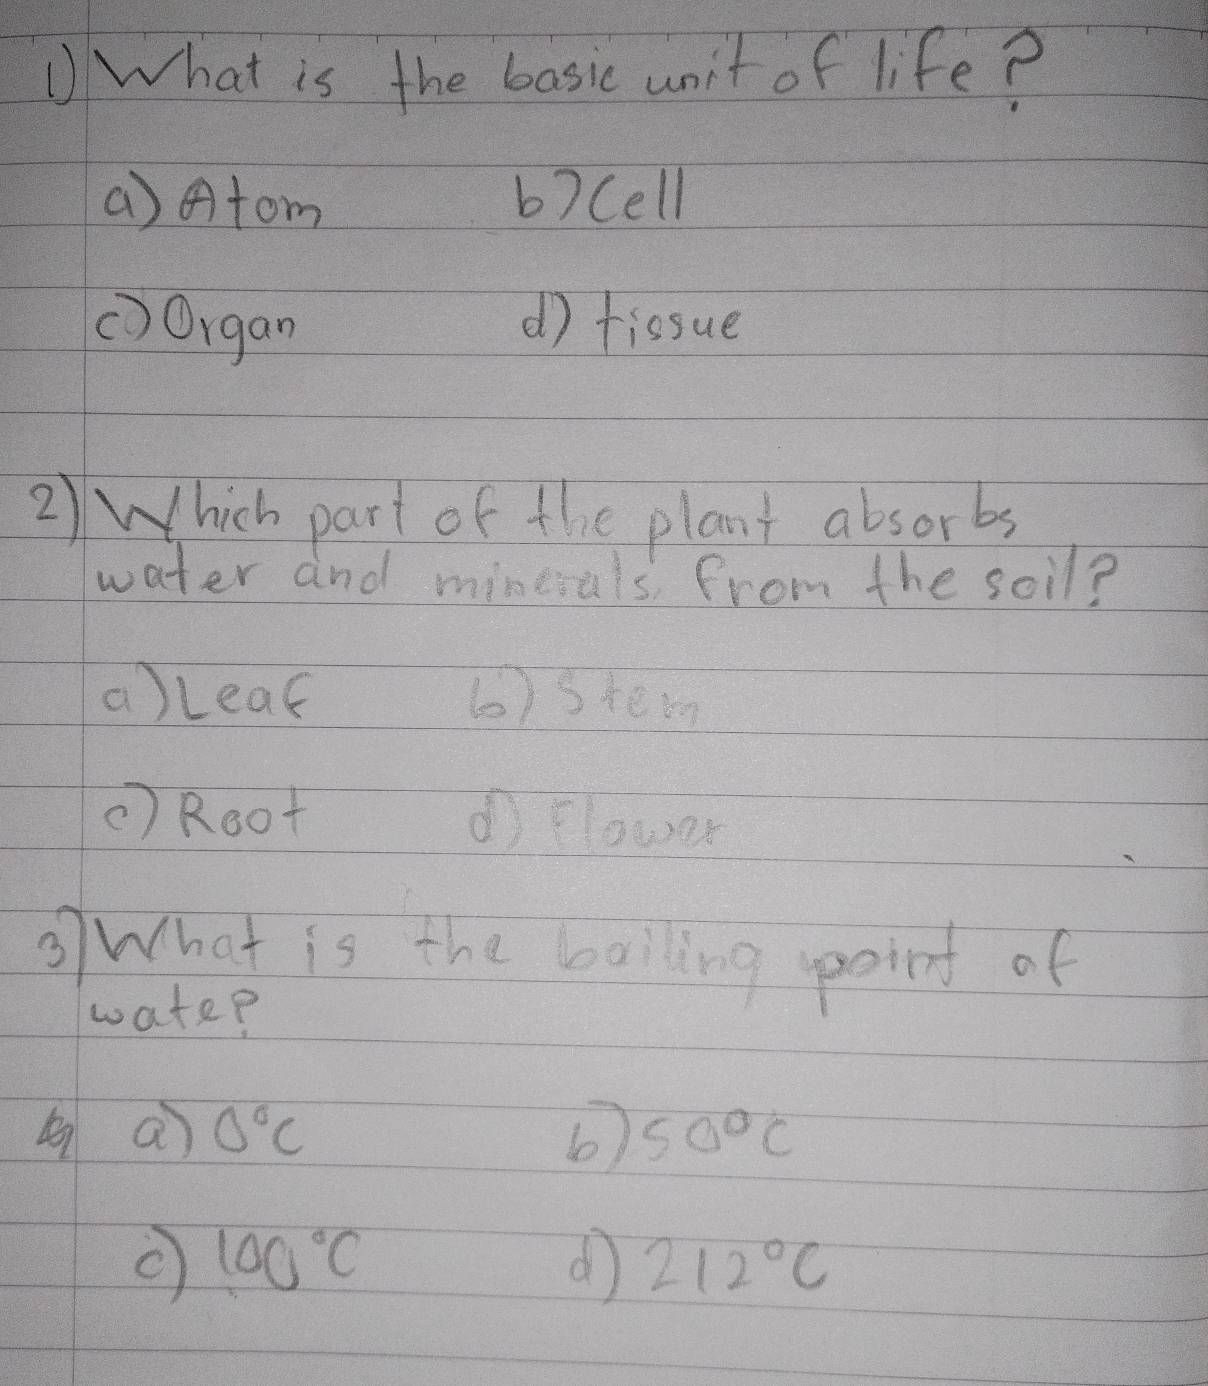 1) What is the basic unit of life?
a) Atom b) Cell
c) Organ d) tissue
2) Which part of the plant absorbs
water and minerals, from the soil?
a) Leaf b) Stem
c) Root d) Flower
3) What is the boiling point of
wate?
a) 0°C b) 50°C
c) 100°C d) 212°C